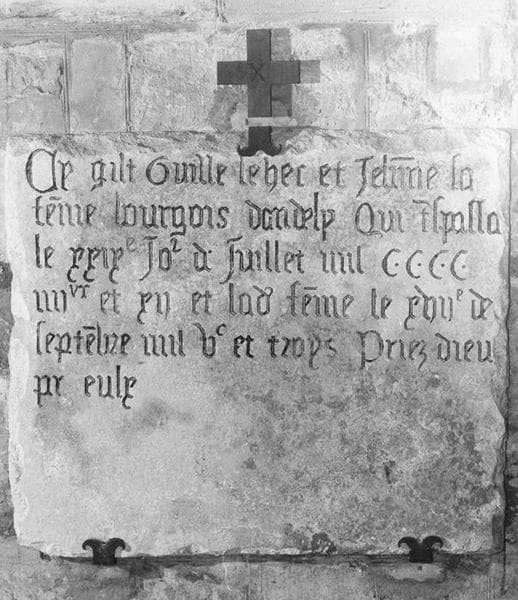 Cy gilt Guille lehec et Jehñne sa
fēme bourgois dandely Qui t̄spassa
le xxix^e Jo^r d Juillet mil CCCC
iiii^vx et xii et lad fēme le xviii^e de
septēbre mil V^c et troys Priez dieu
pr eulx